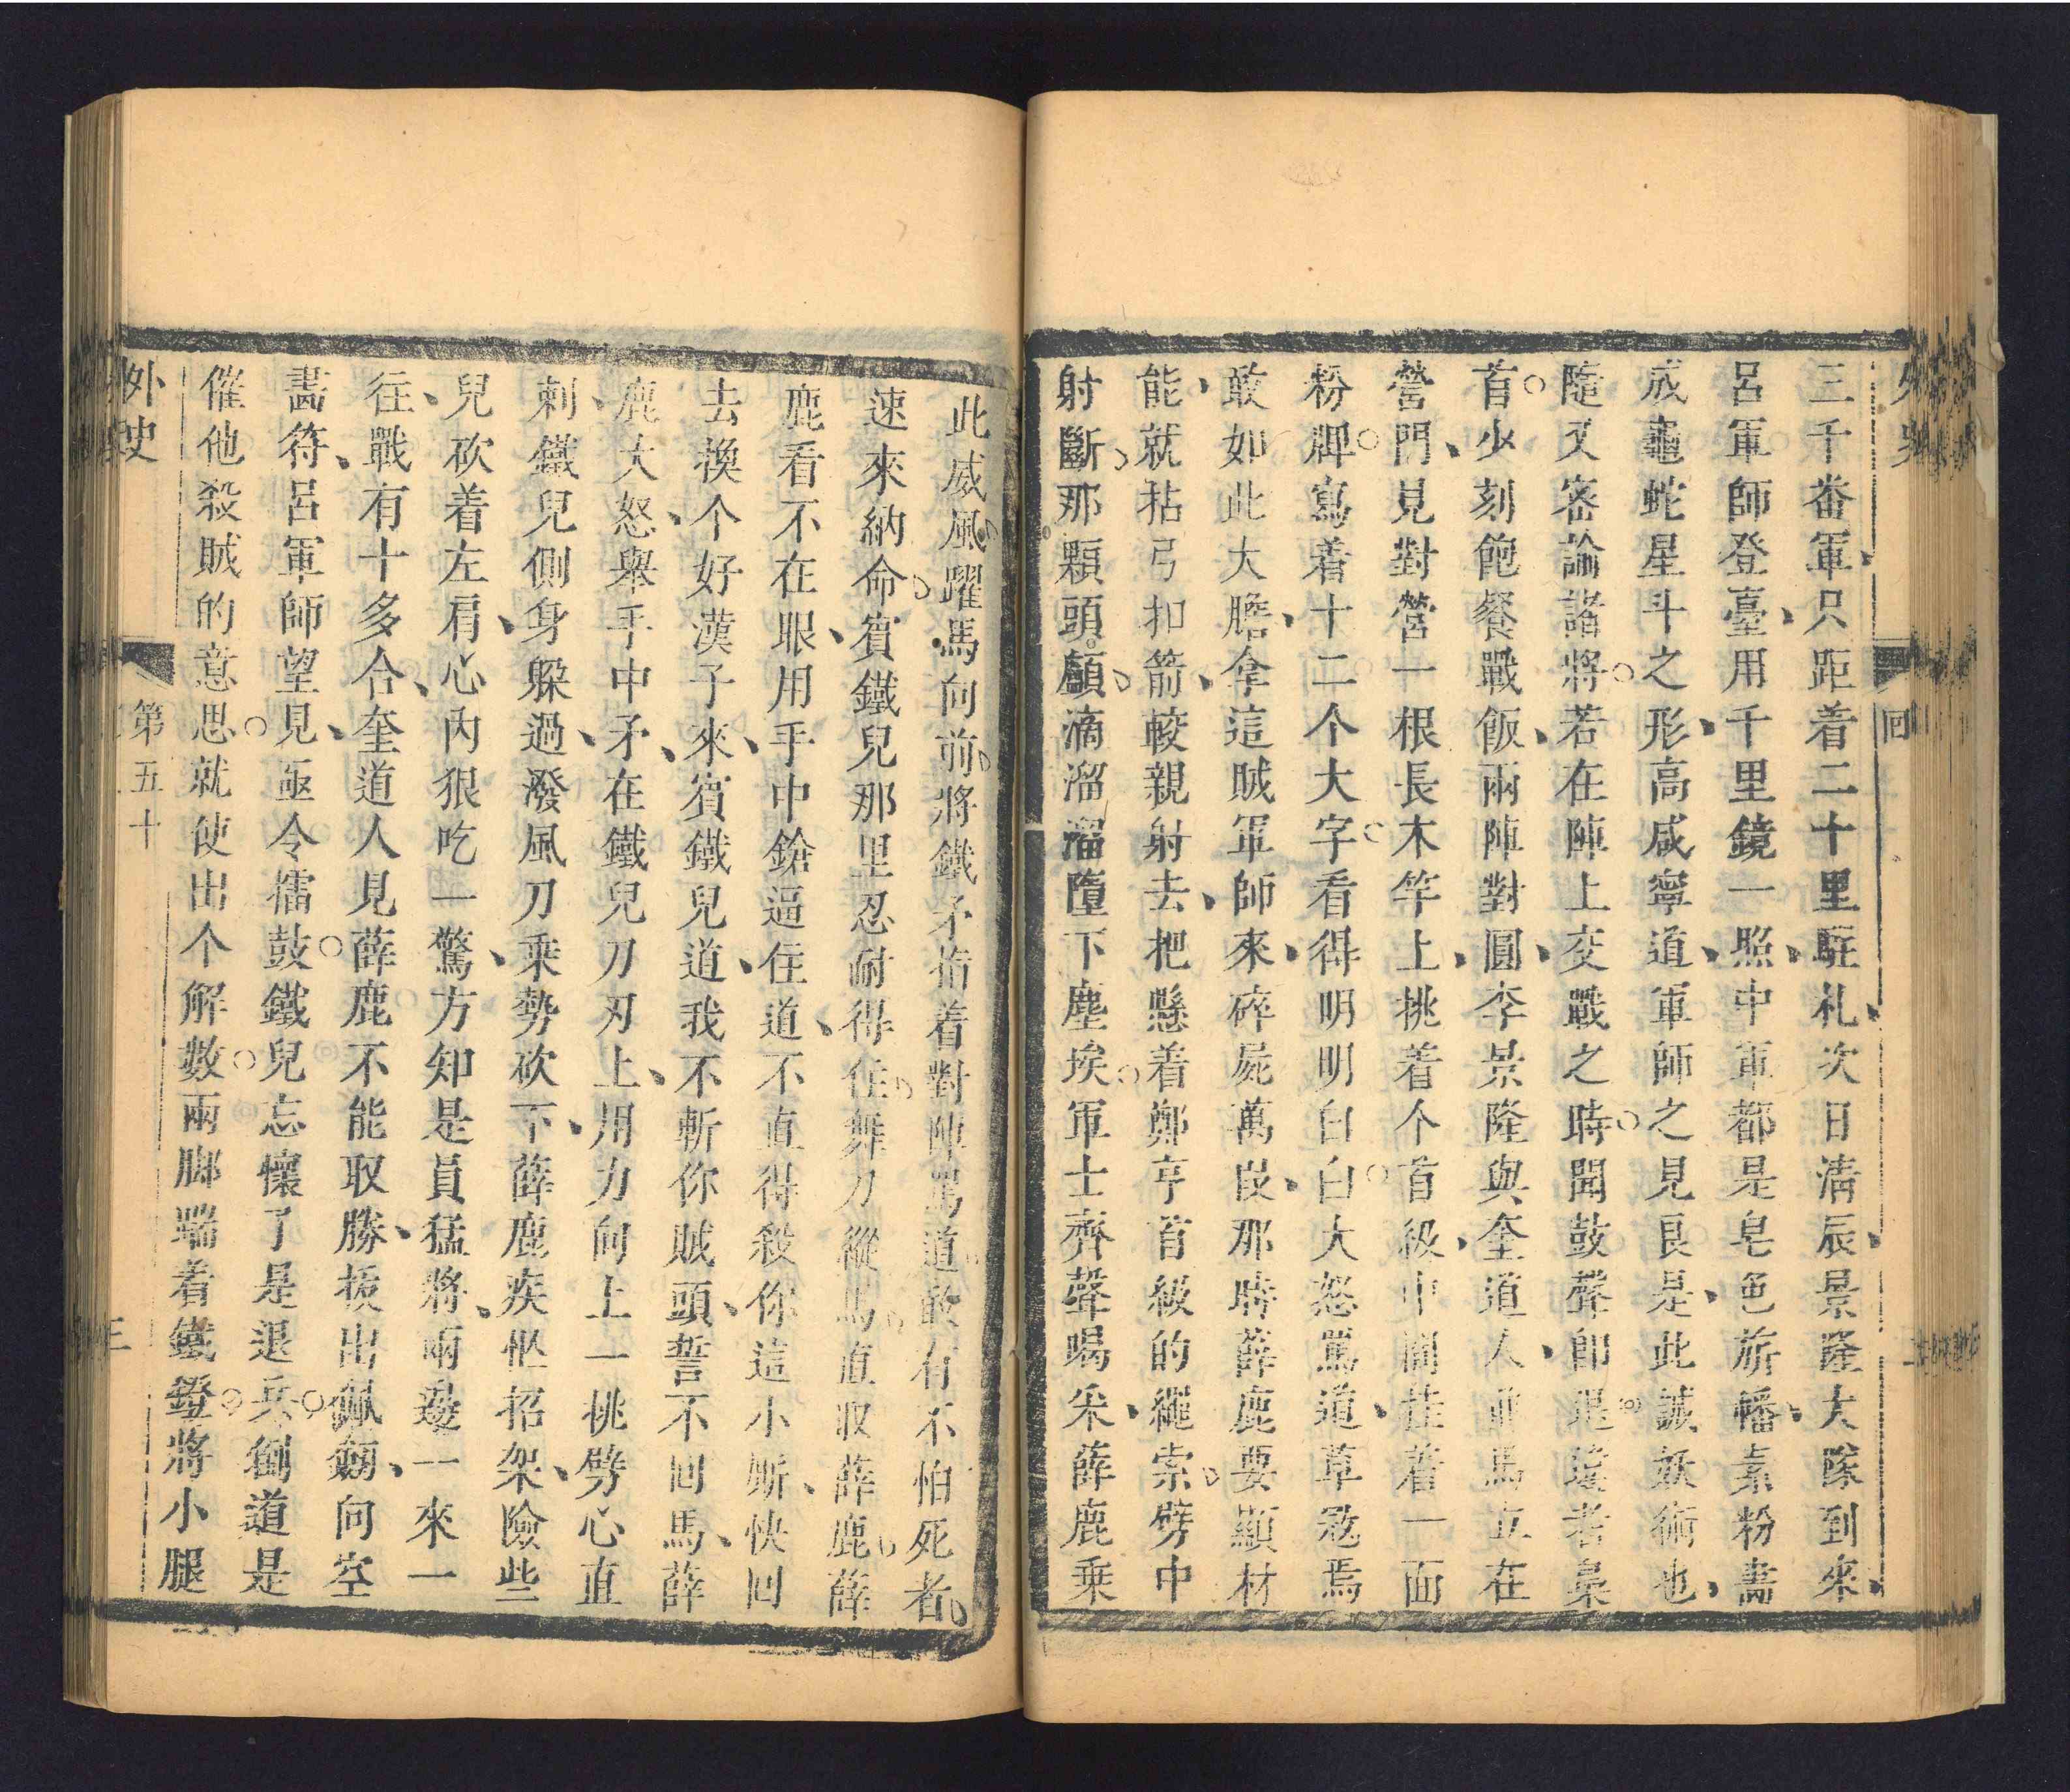 外史
回
三千番軍只距着二十里駐札次日清辰景隆大隊到來
呂軍師登臺用千里鏡一照中軍都是皂色旂幡素粉畵
成龜蛇星斗之形高咸寧道軍師之見良是此誠妖術也
隨又密諭諸將若在陣上交戰之時聞鼓聲即退違者梟
首少刻飽餐戰飯兩陣對圓李景隆與奎道人並馬立在
營門見對營一根長木竿上挑着个首級中間挂着一面
粉牌寫着十二个大字看得明明白白大怒罵道草寇焉
敢如此大膽拿這賊軍師來碎屍萬叚那時薛鹿要顯材
能就拈弓扣箭較親射去把懸着鄭亨首級的繩索劈中
射斷那顆頭顱滴溜溜墮下塵埃軍士齊聲喝采薛鹿乗
此威風躍馬向前將鐵矛指着對陣罵道敢有不怕死者
速來納命賓鐵兒那里忍耐得住舞刀縱馬直取薛鹿薛
鹿看不在眼用手中鎗逼住道不直得殺你這小厮快回
去換个好漢子來賓鐵兒道我不斬你賊頭誓不回馬薛
鹿大怒舉手中矛在鐵兒刀刃上用力向上一挑劈心直
刺鐵兒側身躱過潑風刀乗勢砍下薛鹿疾忙招架險些
兒砍着左肩心內狠吃一驚方知是員猛將兩邊一來一
往戰有十多合奎道人見薛鹿不能取勝掖出佩劒向空
畵符呂軍師望見亟令擂鼓鐵兒忘懷了是退兵劄道是
催他殺賊的意思就使出个解數兩脚踹着鐵鐙將小腿
外史
第五十
三